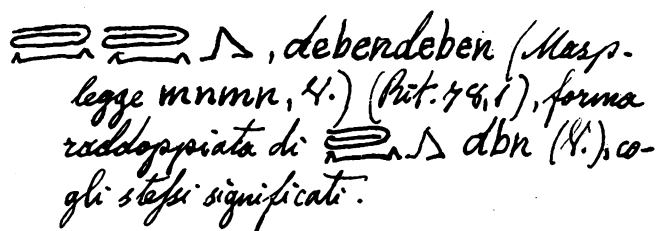 , debendeben (Masp.
legge mnmn, V.) (Rit. 78, 1), forma
raddoppiata di dbn (V.), co-
gli stessi significati.